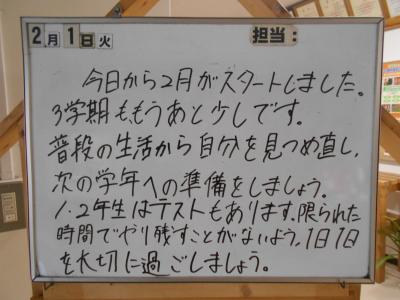 2月1日火 担当:
今日から2月がスタートしました。
3学期ももうあと少しです。
普段の生活から自分を見つめ直し、
次の学年への準備をしましょう。
1.2年生はテストもあります。限られた
時間でやり残すことがないよう、1日1日
を大切に過ごしましょう。